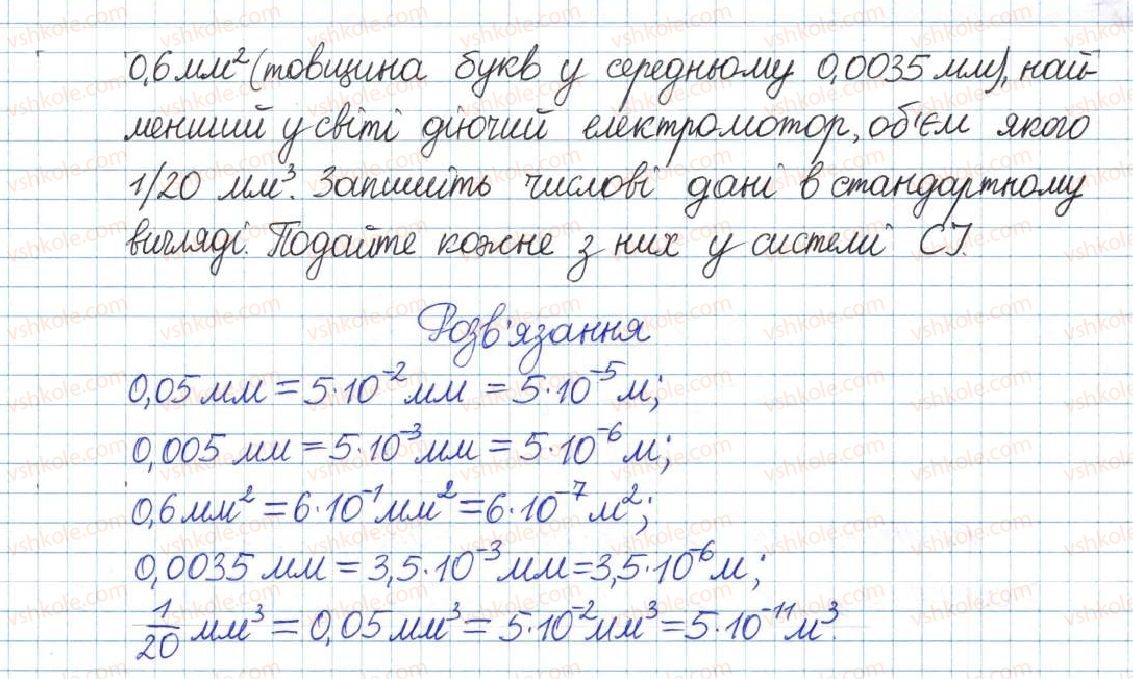 0,6 мм² (товщина букв у середньому 0,0035 мм), най-
менший у світі діючий електромотор, об'єм якого
1/20 мм³. Запишіть числові дані в стандартному
вигляді. Подайте кожне з них у системі СІ.
Розв'язання
0,05 мм = 5·10⁻² мм = 5·10⁻⁵ м;
0,005 мм = 5·10⁻³ мм = 5·10⁻⁶ м;
0,6 мм² = 6·10⁻¹ мм² = 6·10⁻⁷ м²;
0,0035 мм = 3,5·10⁻³ мм = 3,5·10⁻⁶ м;
1/20 мм³ = 0,05 мм³ = 5·10⁻² мм³ = 5·10⁻¹¹ м³.